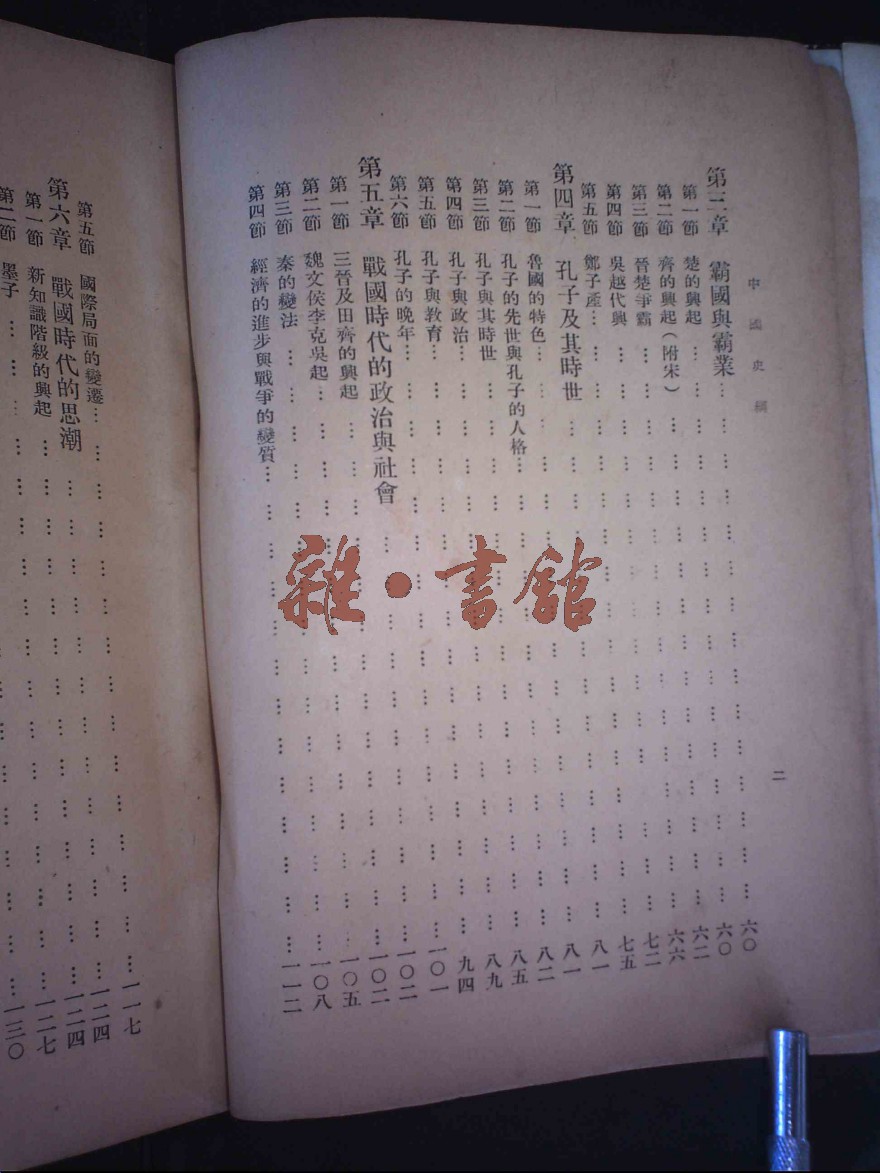 中國史綱
二
第三章 霸國與霸業…………………………六〇
第一節 楚的興起…………………………六〇
第二節 齊的興起(附宋)…………………………六二
第三節 晉楚爭霸…………………………六六
第四節 吳越代興…………………………七二
第五節 鄭子產…………………………七五
第四章 孔子及其時世…………………………八一
第一節 魯國的特色…………………………八一
第二節 孔子的先世與孔子的人格…………………………八二
第三節 孔子與其時世…………………………八五
第四節 孔子與政治…………………………八九
第五節 孔子與教育…………………………九四
第六節 孔子的晚年…………………………一〇一
第五章 戰國時代的政治與社會…………………………一〇二
第一節 三晉及田齊的興起…………………………一〇二
第二節 魏文侯李克吳起…………………………一〇五
第三節 秦的變法…………………………一〇八
第四節 經濟的進步與戰爭的變質…………………………一一二
第五節 國際局面的變遷…………………………一一七
第六章 戰國時代的思潮…………………………一二四
第一節 新知識階級的興起…………………………一二四
第二節 墨子…………………………一二七
一三〇
雜·書館